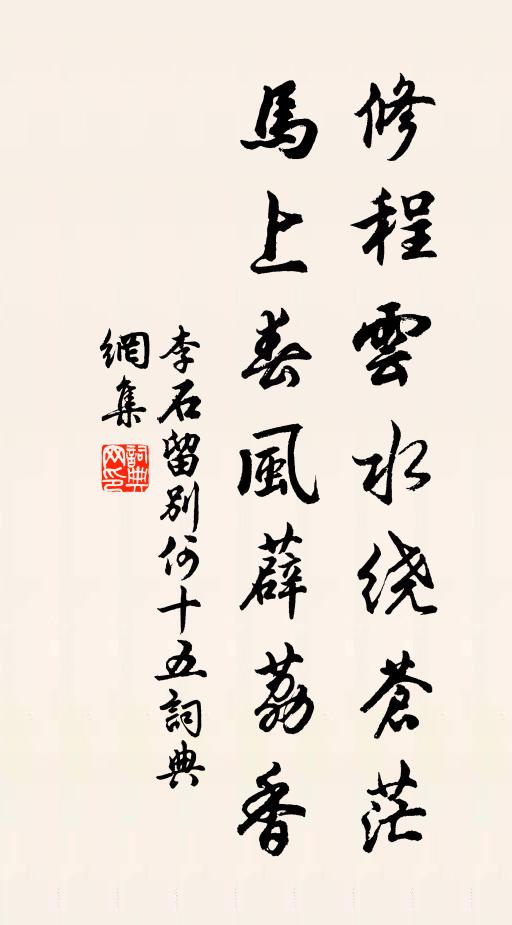 修程雲水绕蒼茫
馬上春風薜荔香
李石留別何十五詞典
網集
詞典
网印